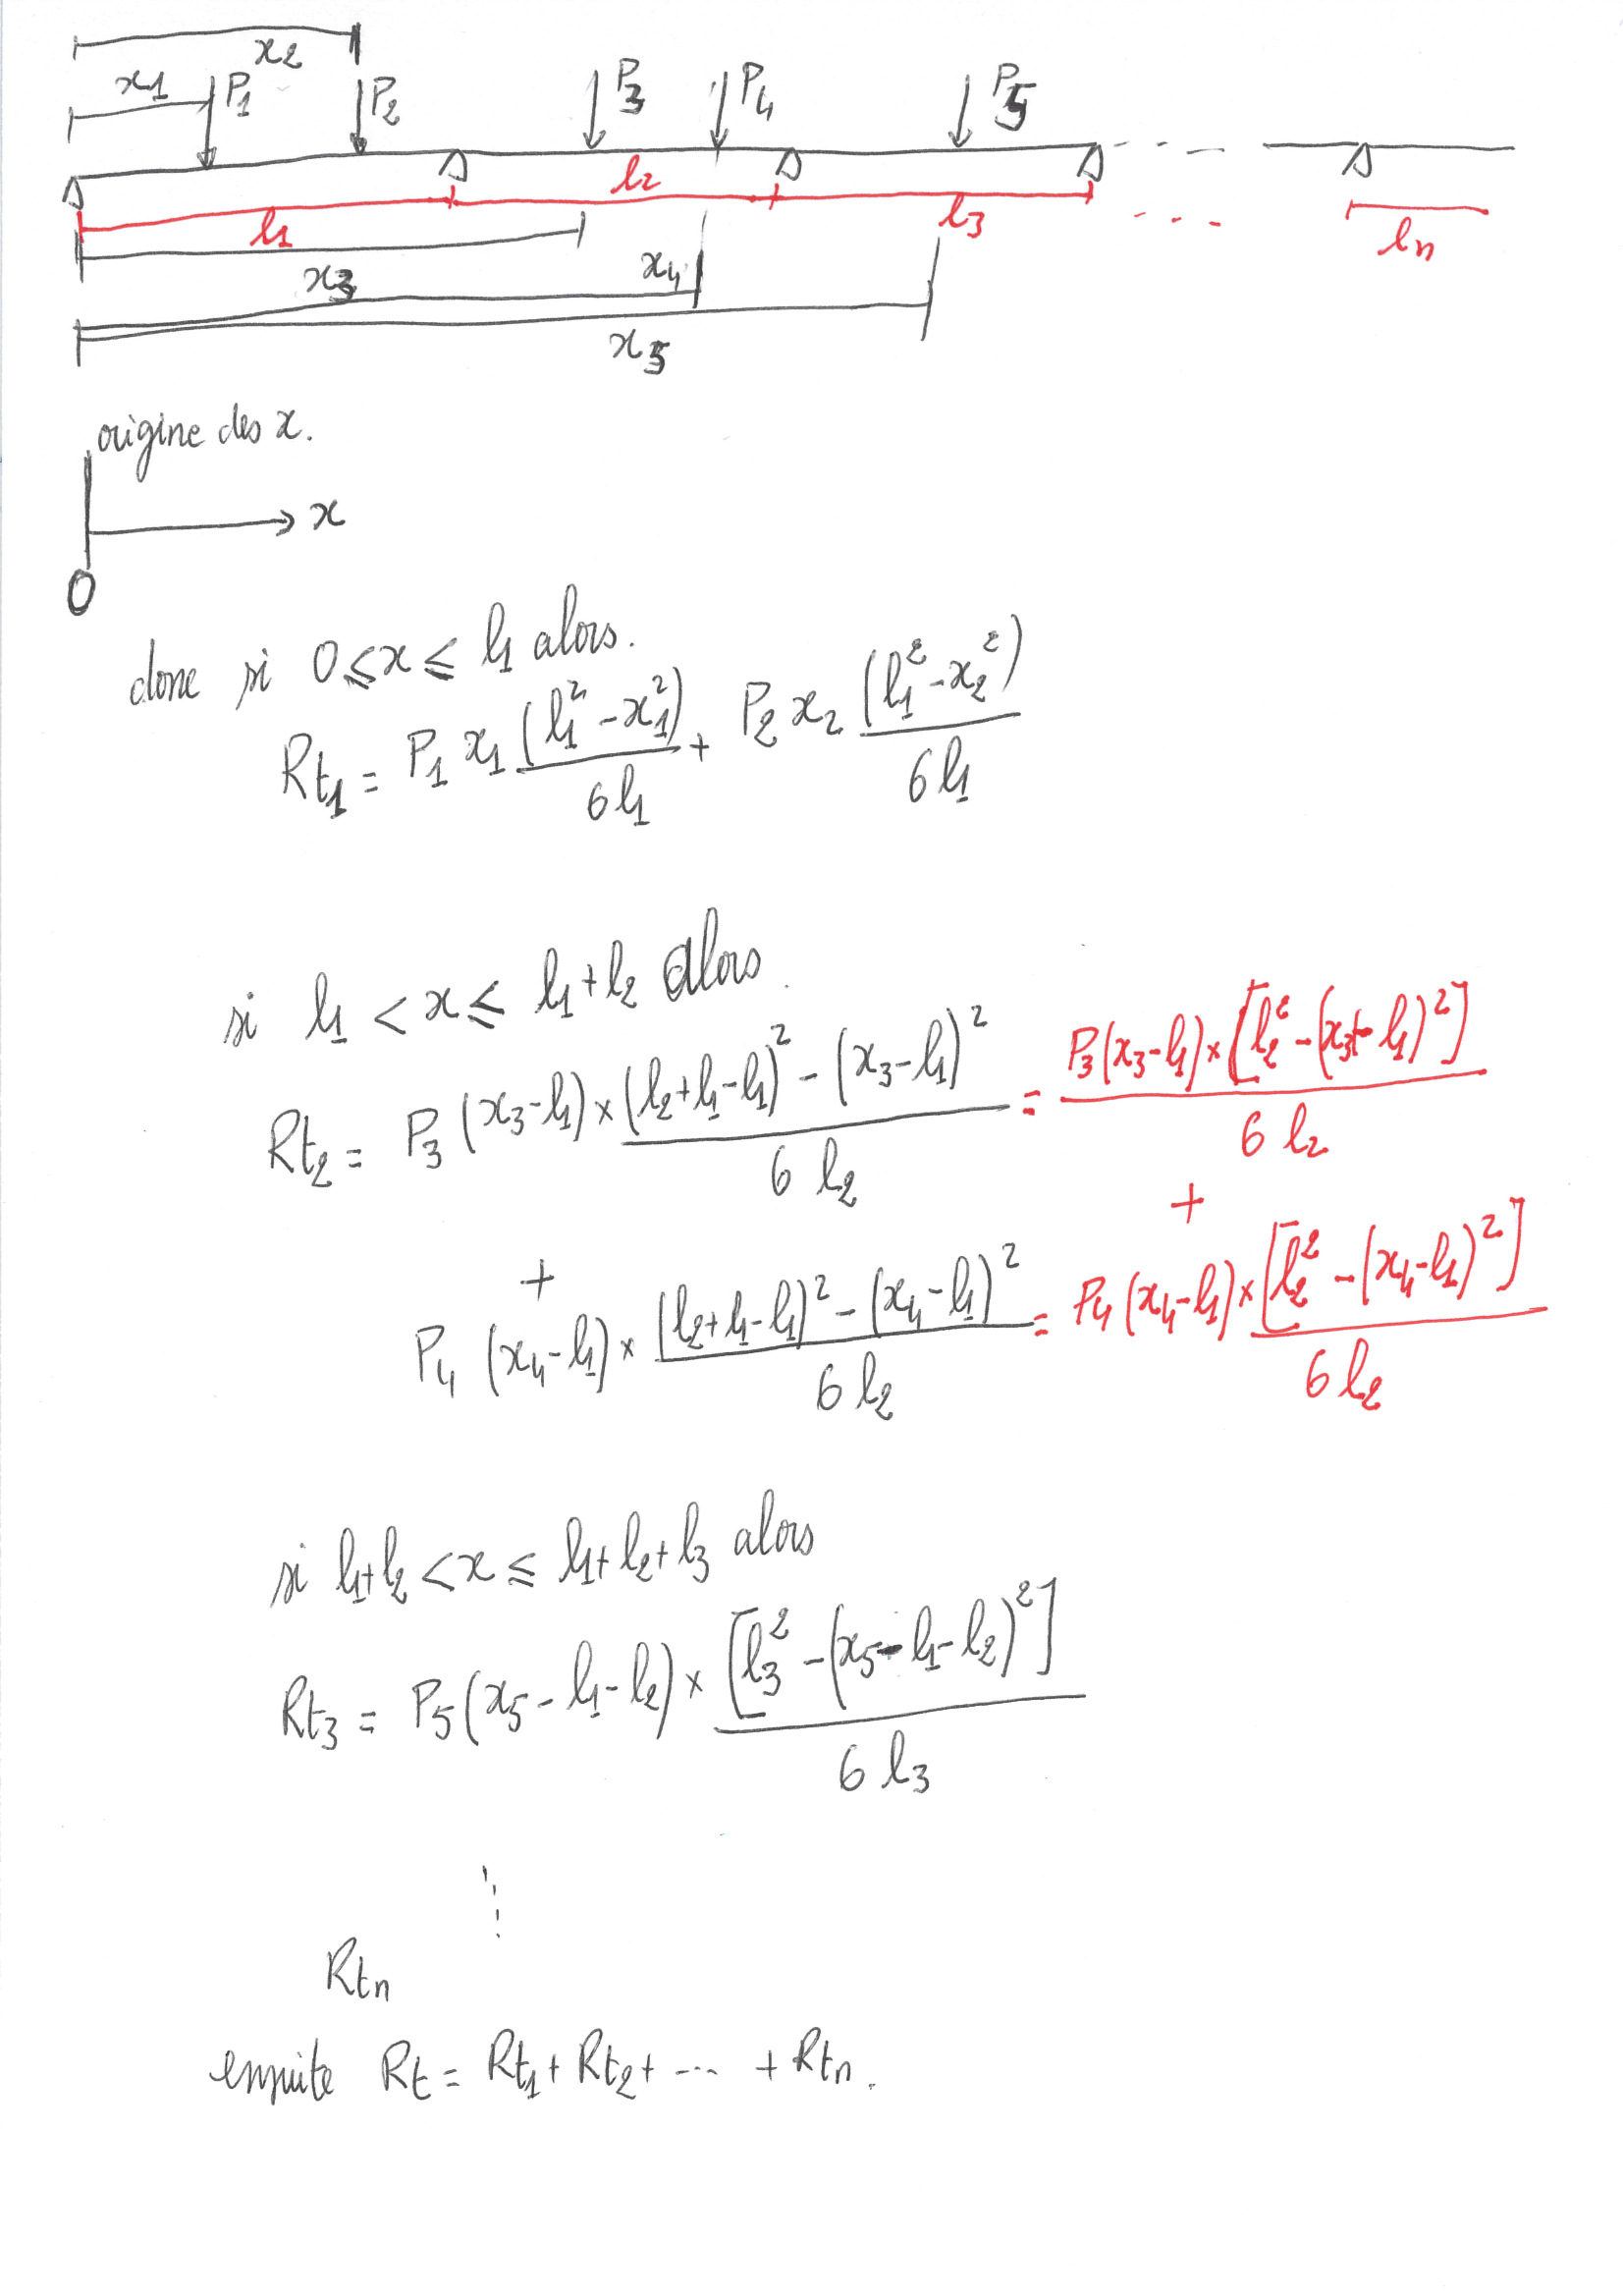 x2
x1 P1 P2 P3 P4 P5
l1 l2 l3 .... ln
x3 x4
x5
origine des x.
x
O
donc si 0 ≤ x ≤ l1 alors.
Rt1 = P1 x1 (l1² - x1²)/6l1 + P2 x2 (l1² - x2²)/6l1
si l1 < x ≤ l1+l2 alors.
Rt2 = P3 (x3-l1) × (l2+l1-l1)² - (x3-l1)² / 6 l2 = P3(x3-l1) × [l2² - (x3-l1)²] / 6 l2
+ +
P4 (x4-l1) × (l2+l1-l1)² - (x4-l1)² / 6 l2 = P4 (x4-l1) × [l2² - (x4-l1)²] / 6 l2
si l1+l2 < x ≤ l1+l2+l3 alors
Rt3 = P5 (x5-l1-l2) × [l3² - (x5-l1-l2)²] / 6 l3
⋮
Rtn
ensuite Rt = Rt1 + Rt2 + ... + Rtn.